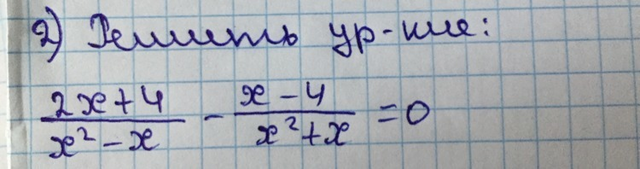 2) Решить ур-ние:
(2x+4)/(x²-x) - (x-4)/(x²+x) = 0